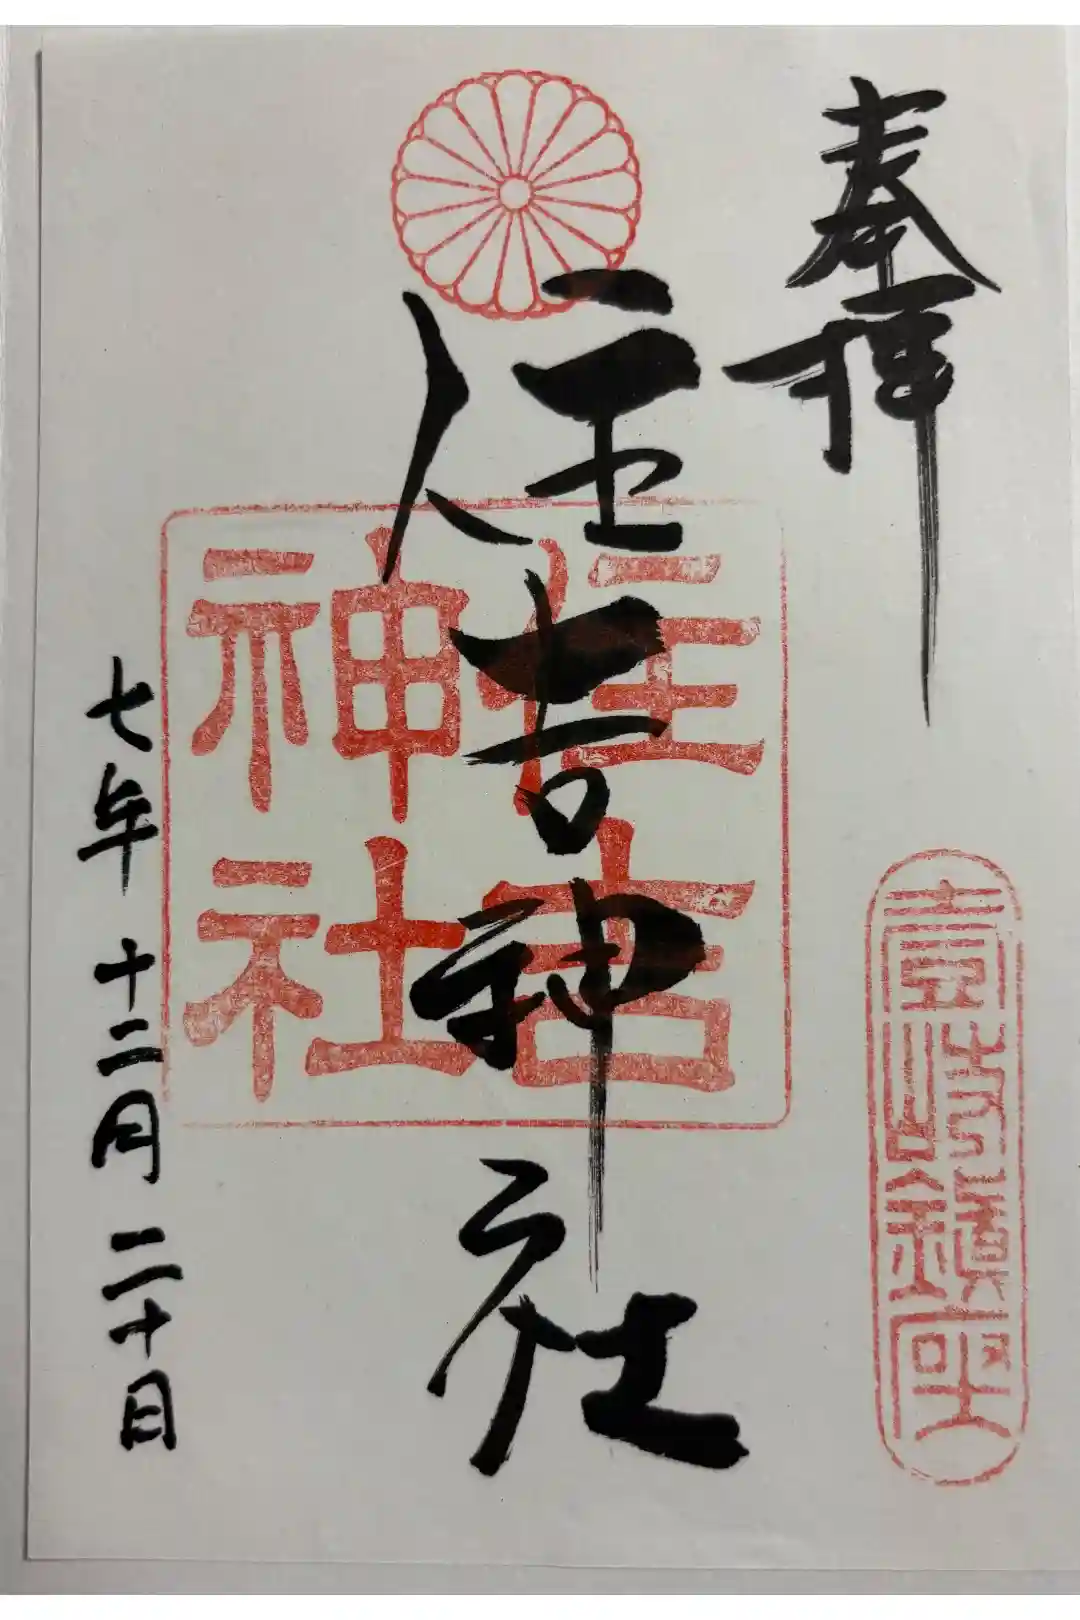 奉拝
壹岐鎮座
住吉神社
住吉
神社
七年 十二月 二十日